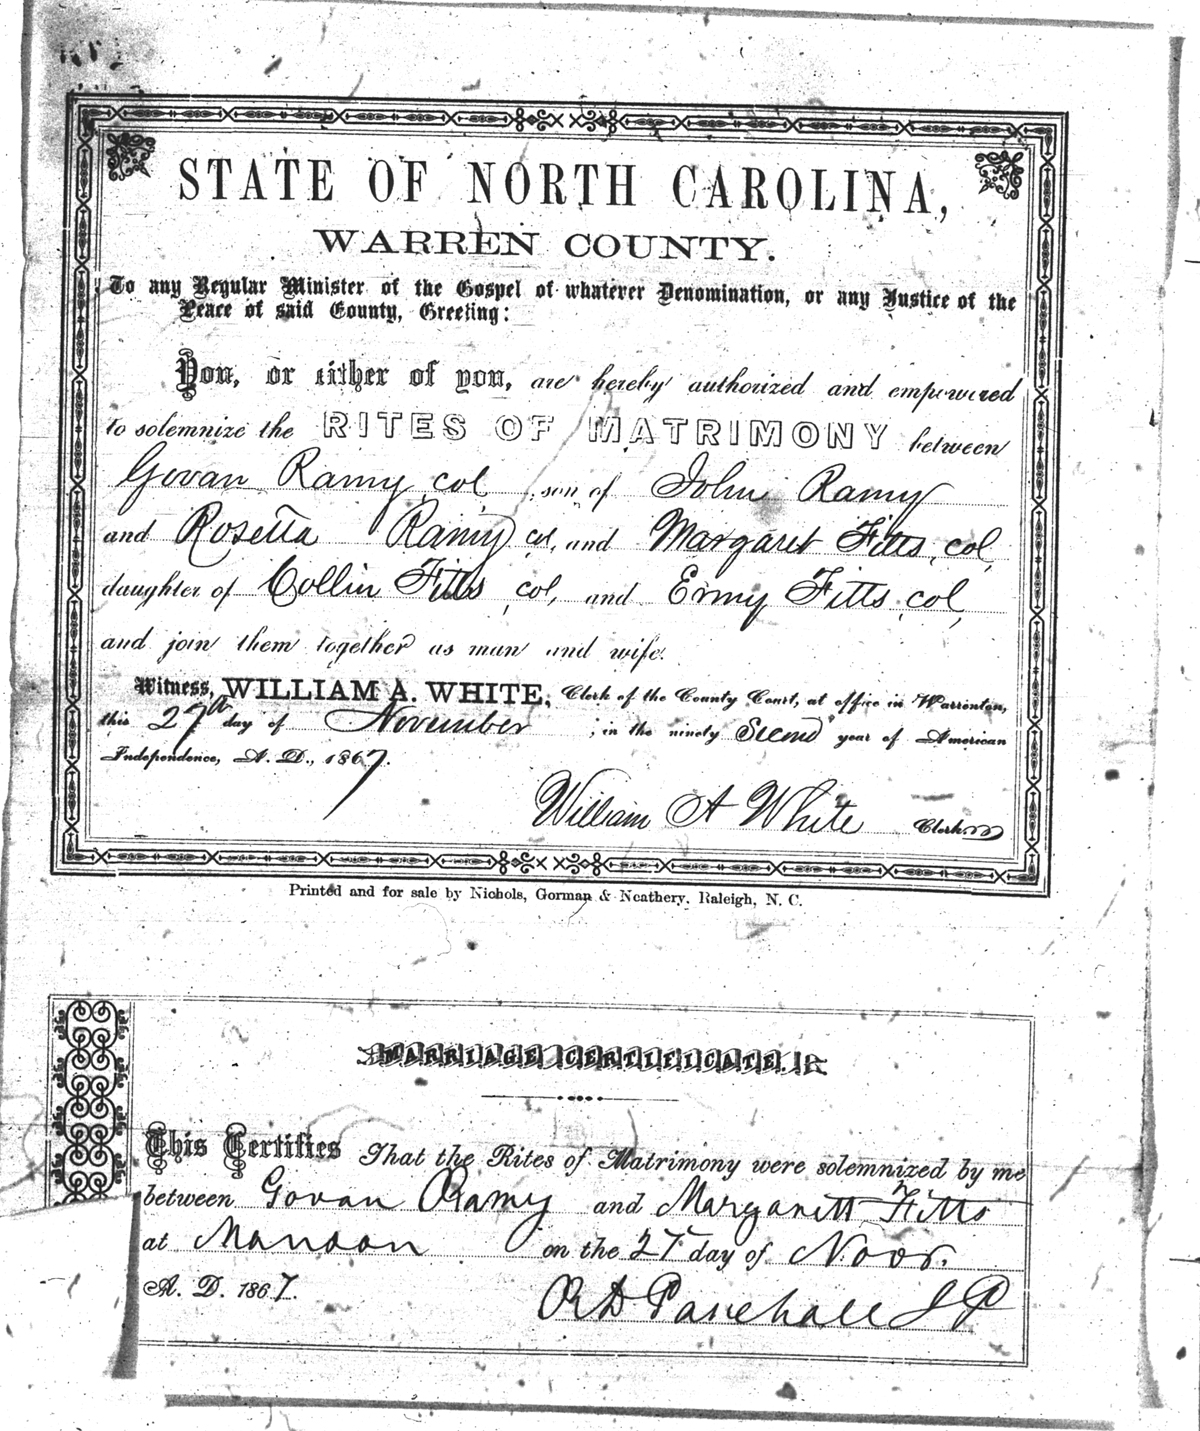 STATE OF NORTH CAROLINA,
WARREN COUNTY.
To any Regular Minister of the Gospel of whatever Denomination, or any Justice of the
Peace of said County, Greeting:
You, or either of you, are hereby authorized and empowered
to solemnize the RITES OF MATRIMONY between
Govan Ramy, col, son of John Ramy
and Rosetta Ramy col, and Margaret Fitts, col,
daughter of Collin Fitts, col, and Emy Fitts, col,
and join them together as man and wife.
Witness, WILLIAM A. WHITE, Clerk of the County Court, at office in Warrenton,
this 27th day of November, in the ninety Second year of American
Independence, A. D., 1867.
William A White Clerk
Printed and for sale by Nichols, Gorman & Neathery, Raleigh, N. C.
MARRIAGE CERTIFICATE.
This Certifies That the Rites of Matrimony were solemnized by me
between Govan Ramy and Margaritt Fitts
at on the 27 day of Novr.
A. D. 1867.
R D Paschall J P